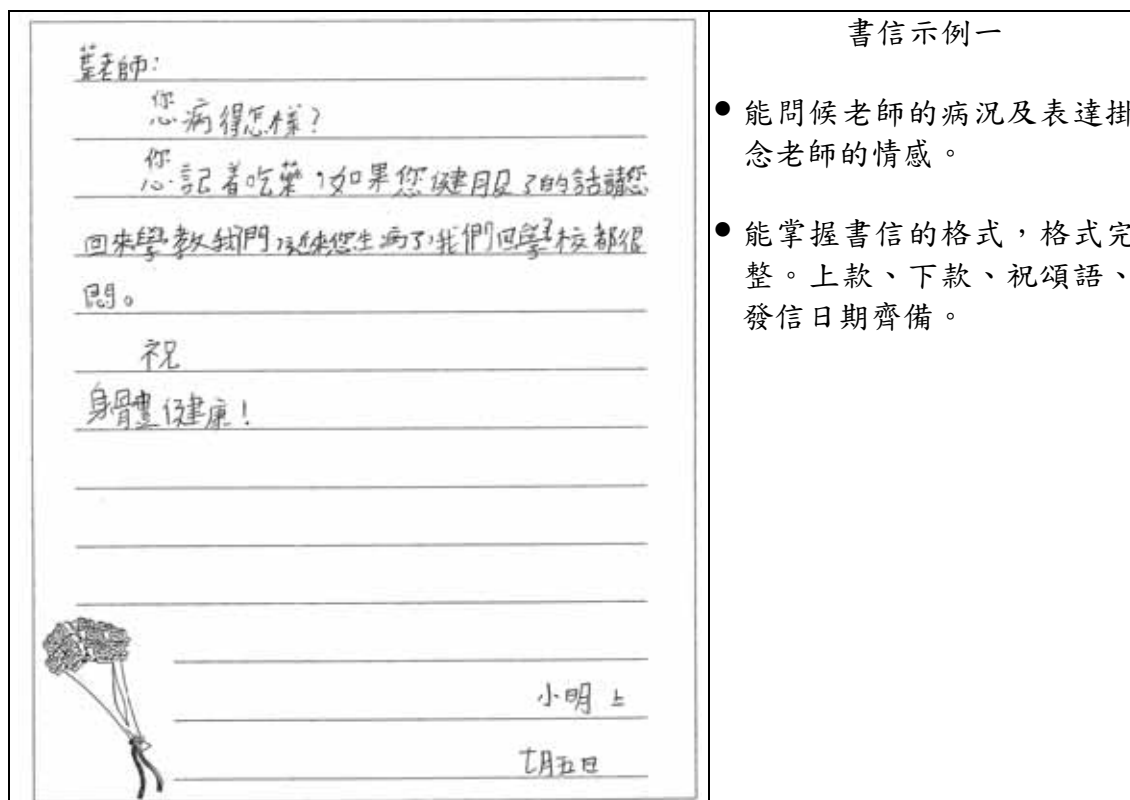 葉老師：
您病得怎樣？
您記着吃藥，如果您健服了的話請您
回來學教我們，近來您生病了，我們回學校都很
悶。
祝
身體健康！
小明 上
七月五日
書信示例一
● 能問候老師的病況及表達掛
念老師的情感。
● 能掌握書信的格式，格式完
整。上款、下款、祝頌語、
發信日期齊備。